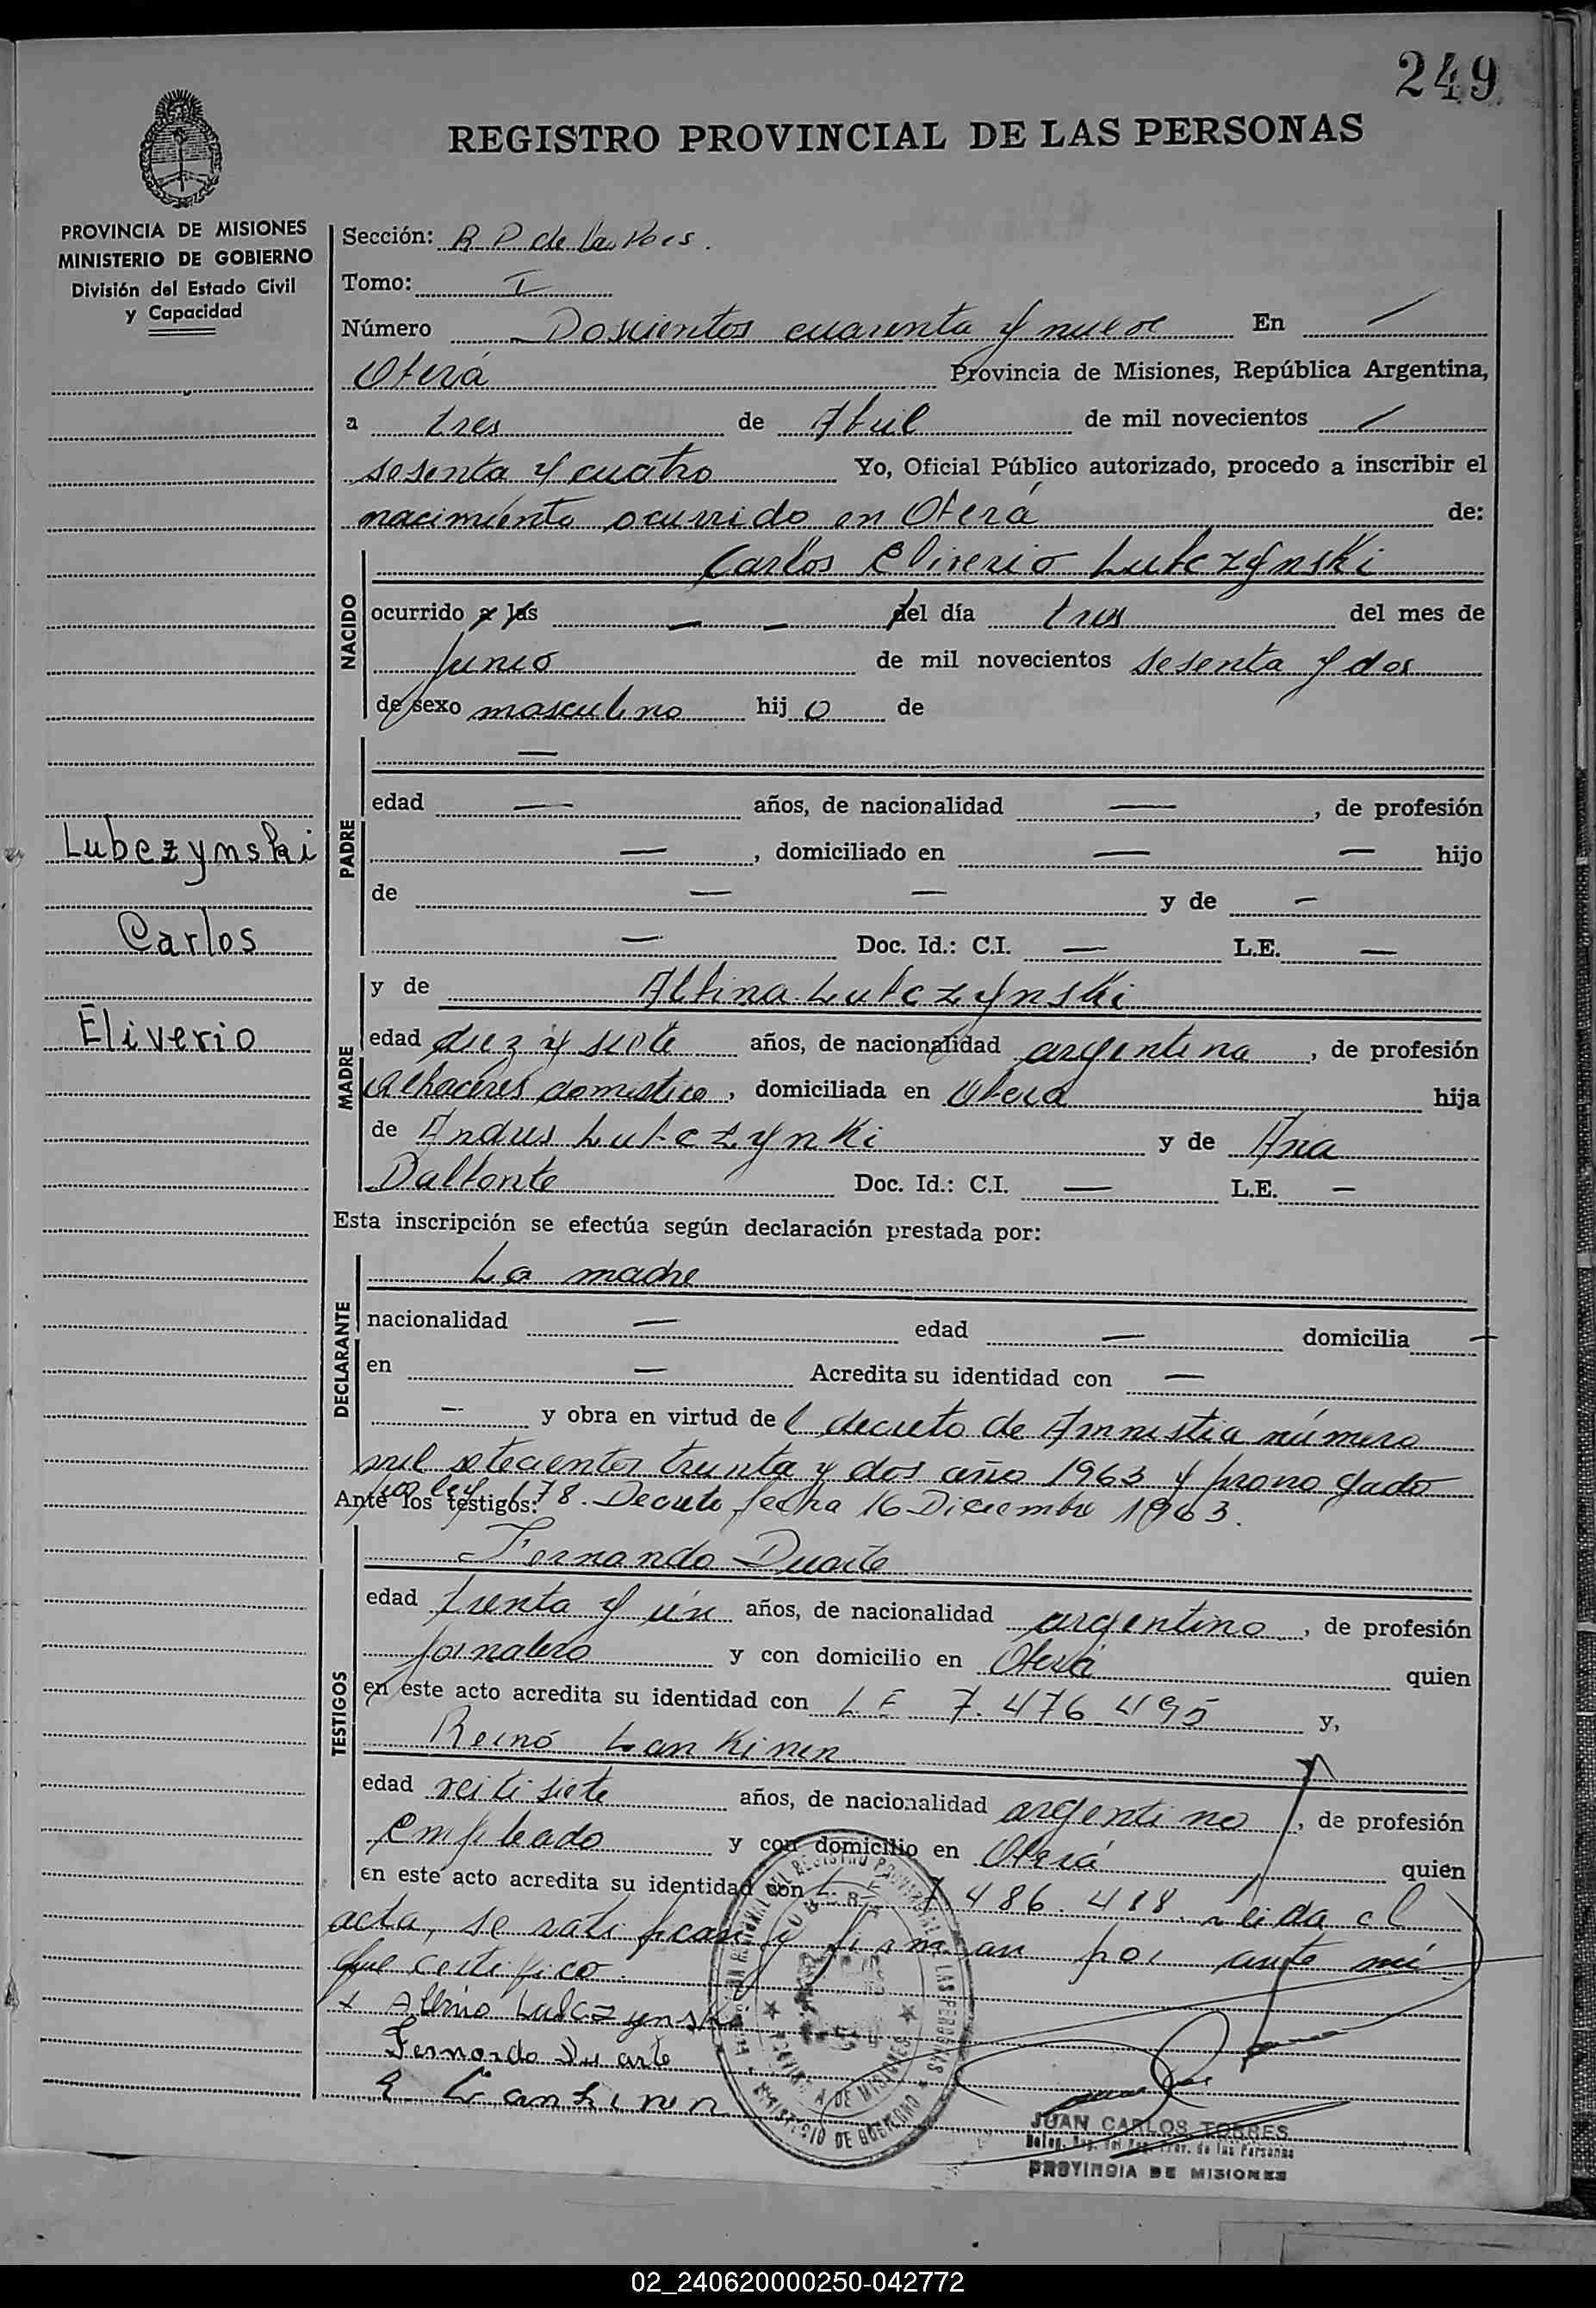 249
REGISTRO PROVINCIAL DE LAS PERSONAS
PROVINCIA DE MISIONES
MINISTERIO DE GOBIERNO
División del Estado Civil
y Capacidad
Lubczynski
Carlos
Eliverio
Sección: R P de las Pers.
Tomo: I
Número Doscientos cuarenta y nueve En /
Oberá Provincia de Misiones, República Argentina,
a tres de Abril de mil novecientos /
sesenta y cuatro Yo, Oficial Público autorizado, procedo a inscribir el
nacimiento ocurrido en Oberá de:
NACIDO
Carlos Eliverio Lubczynski
ocurrido a las — — del día tres del mes de
Junio de mil novecientos sesenta y dos
de sexo masculino hijo de
PADRE
—
edad — años, de nacionalidad —, de profesión
—, domiciliado en — — hijo
de — — y de —
— Doc. Id.: C.I. — L.E. —
MADRE
y de Albina Lubczynski
edad diez y siete años, de nacionalidad argentina, de profesión
Quehaceres domestico, domiciliada en Oberá hija
de Andres Lubczynki y de Ana
Dalbonte Doc. Id.: C.I. — L.E. —
Esta inscripción se efectúa según declaración prestada por:
DECLARANTE
La madre
nacionalidad — edad — domicilia —
en — Acredita su identidad con —
— y obra en virtud del decreto de Amnistia número
mil setecientos treinta y dos año 1963 y prorrogado
por ley 178. Decreto fecha 16 Diciembre 1963.
Ante los testigos:
TESTIGOS
Fernando Duarte
edad treinta y ún años, de nacionalidad argentino, de profesión
jornalero y con domicilio en Oberá quien
en este acto acredita su identidad con L E 7.476.495 y,
Reinó Lankinen
edad veitisiete años, de nacionalidad argentino, de profesión
empleado y con domicilio en Oberá quien
en este acto acredita su identidad con L E 7.486.488 leida el
acta, se ratifican y firman por ante mí
que certifico.
x Albina Lubczynski
Fernando Duarte
Lankinen
MINISTERIO DE GOBIERNO
PROVINCIA DE MISIONES
JUAN CARLOS TORRES
Deleg. Reg. del Reg. Prov. de las Personas
PROVINCIA DE MISIONES
02_240620000250-042772